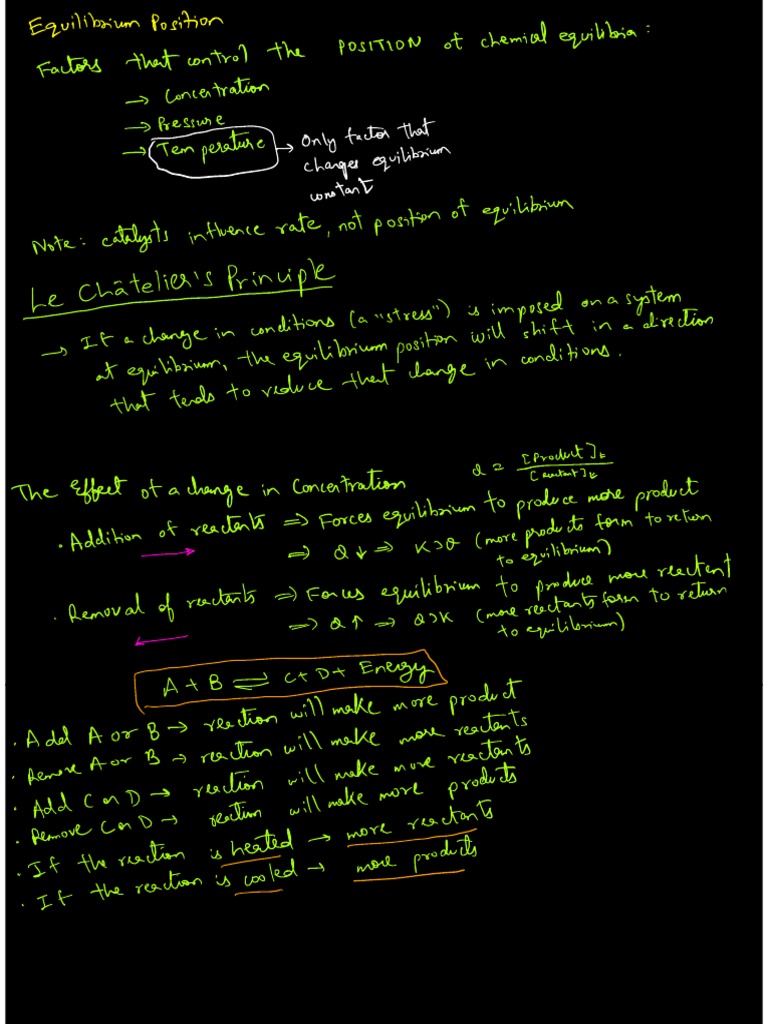 Equilibrium Position
Factors that control the POSITION of chemical equilibria:
→ Concentration
→ Pressure
→ Temperature → Only factor that
changes equilibrium
constant
Note: catalysts influence rate, not position of equilibrium
Le Châtelier's Principle
→ If a change in conditions (a "stress") is imposed on a system
at equilibrium, the equilibrium position will shift in a direction
that tends to reduce that change in conditions.
The Effect of a change in Concentration
Q = [Product]t / [reactant]t
• Addition of reactants ⇒ Forces equilibrium to produce more product
⇒ Q↓ ⇒ K>Q (more products form to return
to equilibrium)
• Removal of reactants ⇒ Forces equilibrium to produce more reactent
⇒ Q↑ ⇒ Q>K (more reactants form to return
to equilibrium)
A + B ⇌ C + D + Energy
• Add A or B → reaction will make more product
• Remove A or B → reaction will make more reactants
• Add C or D → reaction will make more reactants
• Remove C or D → reaction will make more products
• If the reaction is heated → more reactants
• If the reaction is cooled → more products